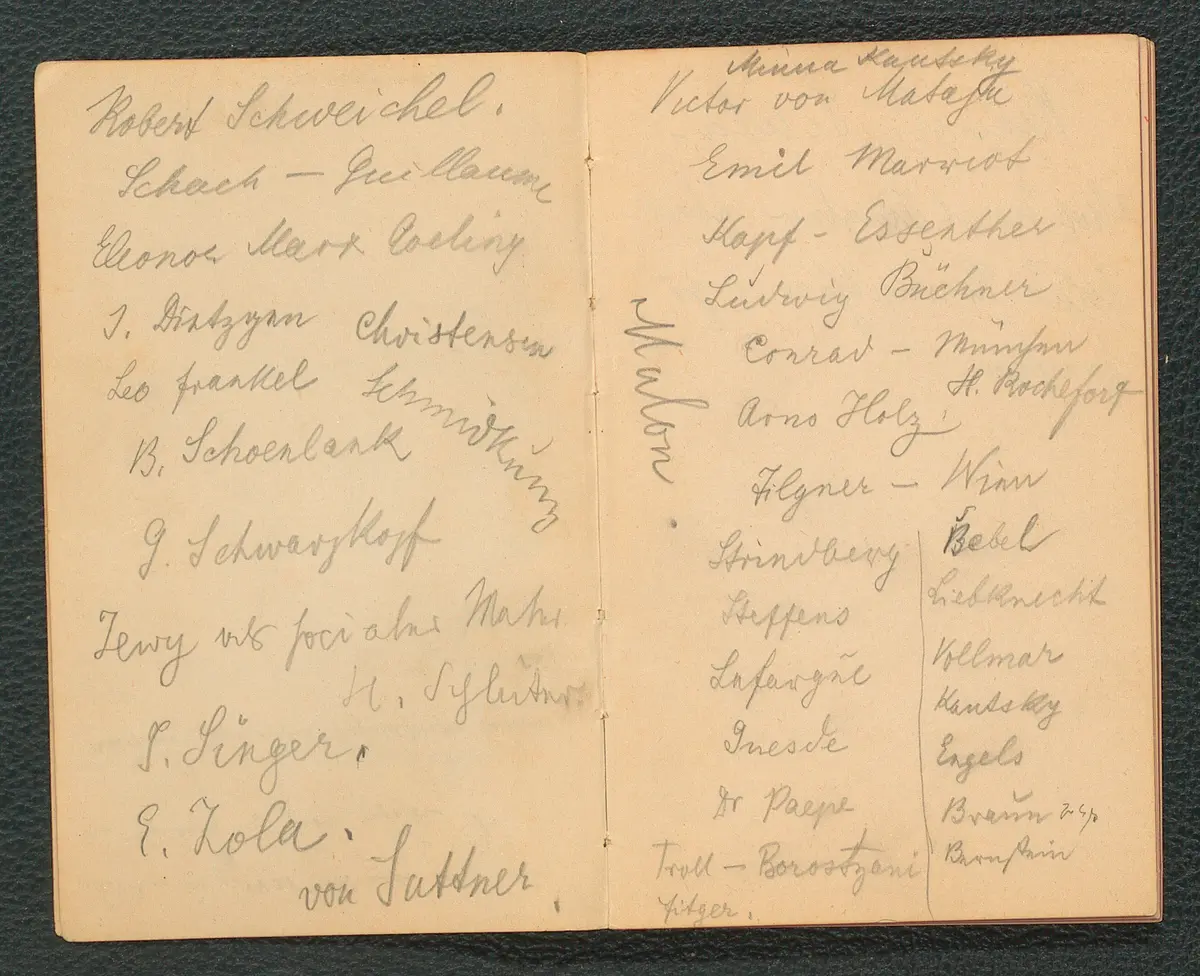 Robert Schweichel.
Schach — Guillaume
Eleonor Marx Aveling
J. Dietzgen Christensen
Leo Frankel Schmidkunz
B. Schoenlank
G. Schwarzkopf
als socialer
H. Schlüter
P. Singer.
E. Zola.
von Suttner
Minna Kautsky
Victor von Mataja
Emil Marriot
Kapf - Essenther
Ludwig Büchner
Conrad - München
H. Rochefort
Arno Holz
Malon
Tilgner - Wien
Strindberg
Steffens
Lafargue
Guesde
Dr Paepe
Troll - Borostyani
Fitger.
Bebel
Liebknecht
Vollmar
Kautsky
Engels
Braun
Bernstein